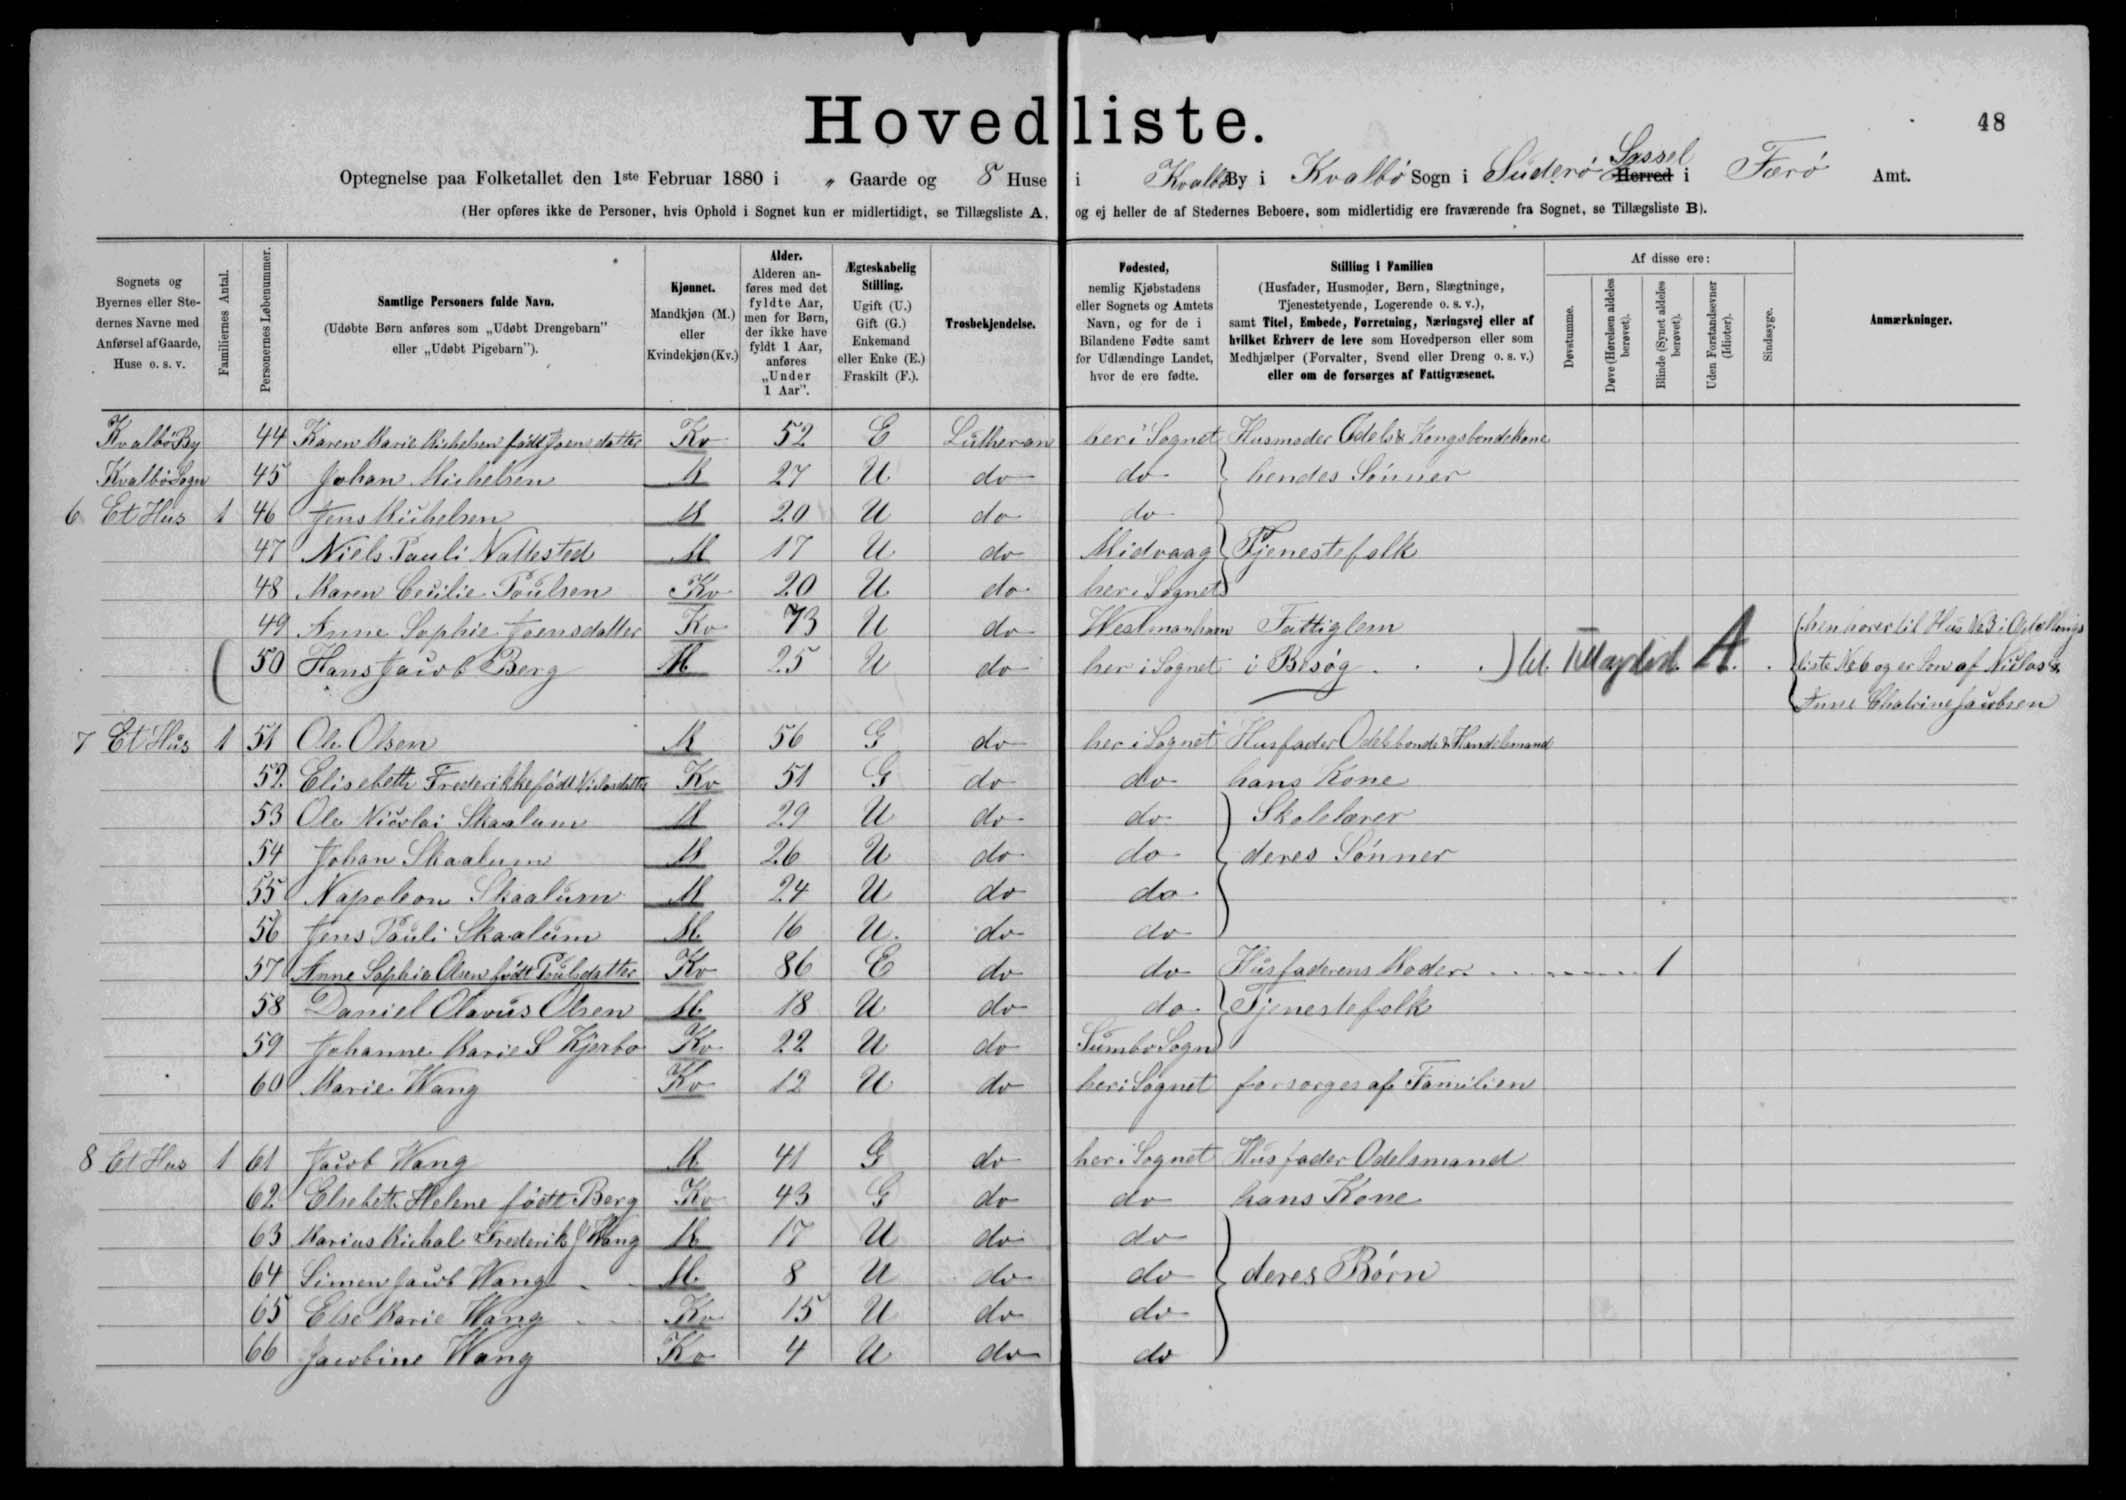 Hovedliste.
48
Optegnelse paa Folketallet den 1ste Februar 1880 i „ Gaarde og 8 Huse i Kvalbø By i Kvalbø Sogn i Suderø Syssel Herred i Færø Amt.
(Her opføres ikke de Personer, hvis Ophold i Sognet kun er midlertidigt, se Tillægsliste A, og ej heller de af Stedernes Beboere, som midlertidig ere fraværende fra Sognet, se Tillægsliste B).
Sognets og Byernes eller Stedernes Navne med Anførsel af Gaarde, Huse o. s. v.
Familiernes Antal.
Personernes Løbenummer.
Samtlige Personers fulde Navn.
(Udøbte Børn anføres som „Udøbt Drengebarn" eller „Udøbt Pigebarn").
Kjønnet.
Mandkjøn (M.) eller Kvindekjøn (Kv.)
Alder.
Alderen anføres med det fyldte Aar, men for Børn, der ikke have fyldt 1 Aar, anføres „Under 1 Aar".
Ægteskabelig Stilling.
Ugift (U.) Gift (G.) Enkemand eller Enke (E.) Fraskilt (F.).
Trosbekjendelse.
Fødested,
nemlig Kjøbstadens eller Sognets og Amtets Navn, og for de i Bilandene Fødte samt for Udlændinge Landet, hvor de ere fødte.
Stilling i Familien
(Husfader, Husmoder, Børn, Slægtninge, Tjenestetyende, Logerende o. s. v.),
samt Titel, Embede, Forretning, Næringsvej eller af hvilket Erhverv de leve som Hovedperson eller som Medhjælper (Forvalter, Svend eller Dreng o. s. v.) eller om de forsørges af Fattigvæsenet.
Af disse ere:
Døvstumme.
Døve (Hørelsen aldeles berøvet).
Blinde (Synet aldeles berøvet).
Uden Forstandsevner (Idioter).
Sindssyge.
Anmærkninger.
Kvalbø By 44 Karen Marie Michelsen født Joensdatter Kv 52 E Lutheran her i Sognet Husmoder Odels & Kongsbondekone
Kvalbø Sogn 45 Johan Michelsen M 27 U do do hendes Sønner
6 Et Hus 1 46 Jens Michelsen M 20 U do do
47 Niels Pauli Nattested M 17 U do Midvaag Tjenestefolk
48 Maren Cecilie Poulsen Kv 20 U do her i Sognet
49 Anne Sophie Joensdatter Kv 73 U do Westmanhavn Fattiglem
(50 Hans Jacob Berg M 25 U do her i Sognet i Besøg . . .) til Tillægslist A. . (hen hører til Hus No 3 i Optellings
liste No 6 og er Søn af Niclas &
Anne Chatrine Jacobsen
7 Et Hus 1 51 Ole Olsen M 56 G do her i Sognet Husfader Odelsbonde & Handelsmand
52 Elisebeth Frederikke født Niclasdatter Kv 51 G do do hans Kone
53 Ole Nicolai Skaalum M 29 U do do Skolelærer
54 Johan Skaalum M 26 U do do deres Sønner
55 Napoleon Skaalum M 24 U do do
56 Jens Pauli Skaalum M. 16 U. do do
57 Anne Sophia Olsen født Poulsdatter Kv 86 E do do Husfaderens Moder 1
58 Daniel Olavus Olsen M. 18 U do do Tjenestefolk
59 Johanne Marie S Kjerbo Kv 22 U do Sumbø Sogn
60 Marie Wang Kv 12 U do her i Sognet forsørges af Familien
8 Et Hus 1 61 Jacob Wang M. 41 G do her i Sognet Husfader Odelsmand
62 Elsebeth Helene født Berg Kv 43 G do do hans Kone
63 Marius Michal Frederik J Wang M. 17 U do do
64 Simen Jacob Wang M. 8 U do do deres Børn
65 Else Marie Wang Kv 15 U do do
66 Jacobine Wang Kv 4 U do do